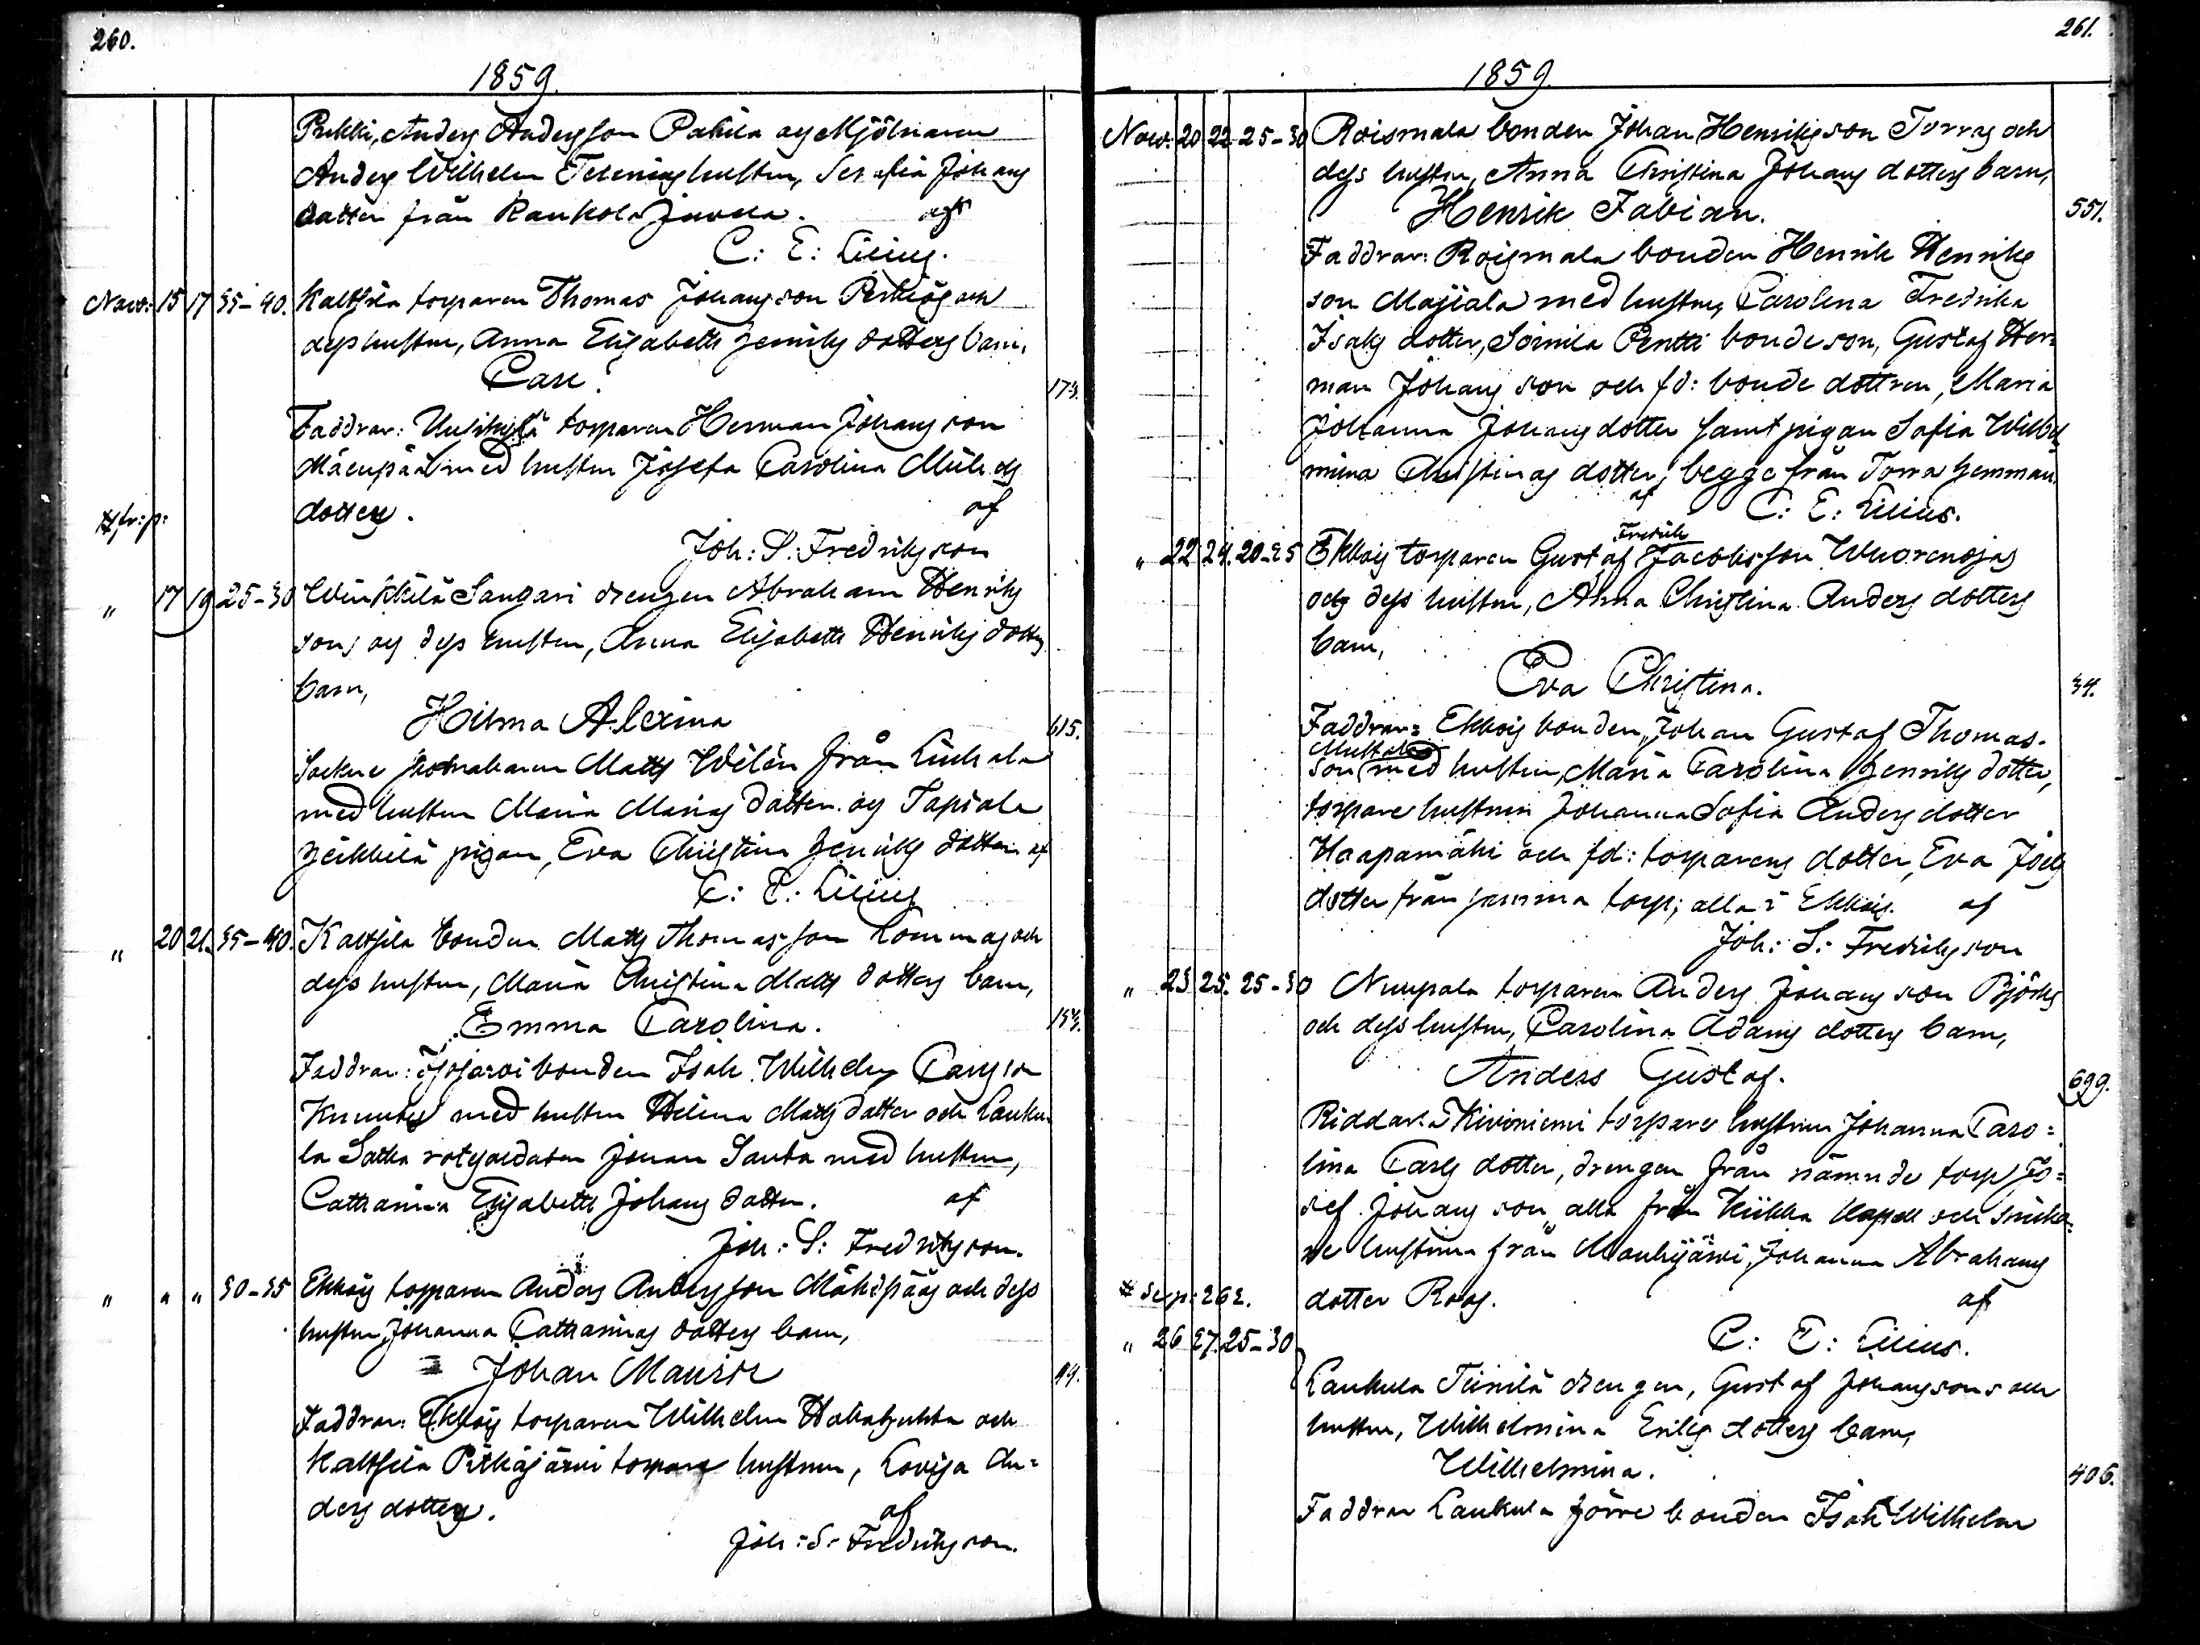 260.
1859.
Pukki, Anders Andersson Pakila og Mjölnaren
Anders Wilhelm Telenius hustru, Serafia Johans
dotter från Kaukola Juvela. af
C: E: Lilius.
Nov: 15 17 35-40. Kaltsila torparen Thomas Johansson och
dess hustru, Anna Elisabeth Henriks dotters barn,
Carl. 173.
Faddrar: torparen Herman Johans son
med hustru Josefa Carolina Michels
dotter. af
Joh: S: Fredriksson
" 17 19 25-30 Winkkilä Sangari drengen Abraham Henriks
son, og dess hustru, Anna Elisabeth Henriks dotters
barn,
Hilma Alexina 615.
Sockne Matts Wilén från Liuhala
med hustru Maria Marias dotter og Tapiola
Heikkilä pigan, Eva Christina Henriks dotter af
C: E: Lilius
" 20 21. 35-40. Kaltsila bonden Matts Thomasson och
dess hustru, Maria Christina Matts dotters barn,
Emma Carolina. 153.
Faddrar: bonden Isak Wilhelm Carlsson
med hustru Helena Matts dotter och Lauku
la Satka rotesoldaten Johan Santa med hustru,
Catharina Elisabeth Johans dotter. af
Joh: S: Fredriksson.
" " " 30-35 Ekkois torparen Anders Andersson Mäkipääs och dess
hustru Johanna Catharinas dotters barn,
Johan Mauritz
Faddrar: Ekkois torparen Wilhelm och
Kaltsila Pitkäjärvi torpare hustrun, Lovisa An=
ders dotter.
af
Joh: S: Fredriksson.
261.
1859.
Nov: 20 22 25-30 Roismala bonden Johan Henriksson Torras och
dess hustru, Anna Christina Johans dotters barn,
Henrik Fabian. 551.
Faddrar: Roismala bonden Henrik Henriks
son Majiala med hustru, Carolina Fredrika
Isaks dotter, Soinila Pentti bondeson, Gustaf Her=
man Johans son och fd: bonde dottren, Maria
Johanna Johans dotter samt pigan Sofia Wilhel
mina Christinas dotter, begge från Torra hemman.
af C: E: Lilius.
Fredrik
" 22 24. 20-25 Ekkois torparen Gustaf Jacobsson Wuorenojas
och dess hustru, Anna Christina Anders dotters
barn,
Eva Christina. 34.
Faddrar: Ekkois bonden, Johan Gustaf Thomas-
son med hustru, Maria Carolina Henriks dotter,
torpare hustrun Johanna Sofia Anders dotter
Haapamäki och fd: torparens dotter, Eva
dotter från samma torp; alla i Ekkois. af
Joh: S: Fredriksson
" 23 25. 25-30 Nuupala torparen Anders Johans son Björks
och dess hustru, Carolina Adams dotters barn,
Anders Gustaf. 699.
Riddar. Kiviniemi torpare hustrun Johanna Caro=
lina Carls dotter, drengen från nämnde torp Jo=
sef Johans son, alla från Kiikka kapell och snicka
re hustrun från Mouhijärvi, Johanna Abrahams
dotter Roos. af
C: E: Lilius.
" 26 27. 25-30
Laukula Tiinilä drengen, Gustaf Johanssons och
hustru, Wilhelmina Eriks dotters barn,
Wilhelmina. 406.
Faddrar Laukula Jörre bonden Isak Wilhelm